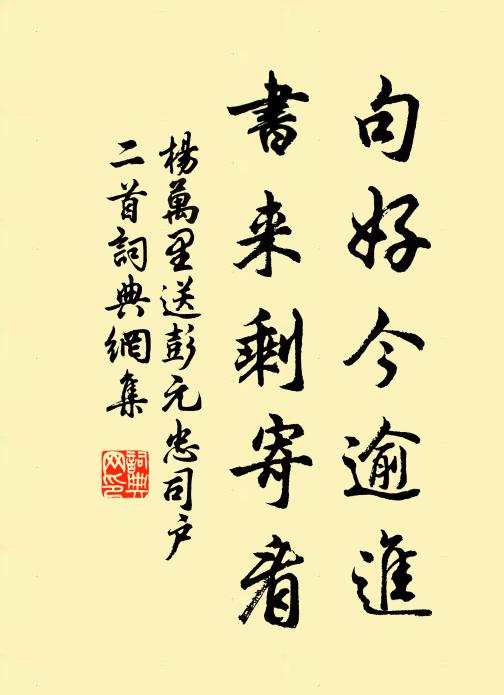 句好今逾進
書来剩寄看
楊萬里送彭元忠司户
二首詞典網集
詞典网印